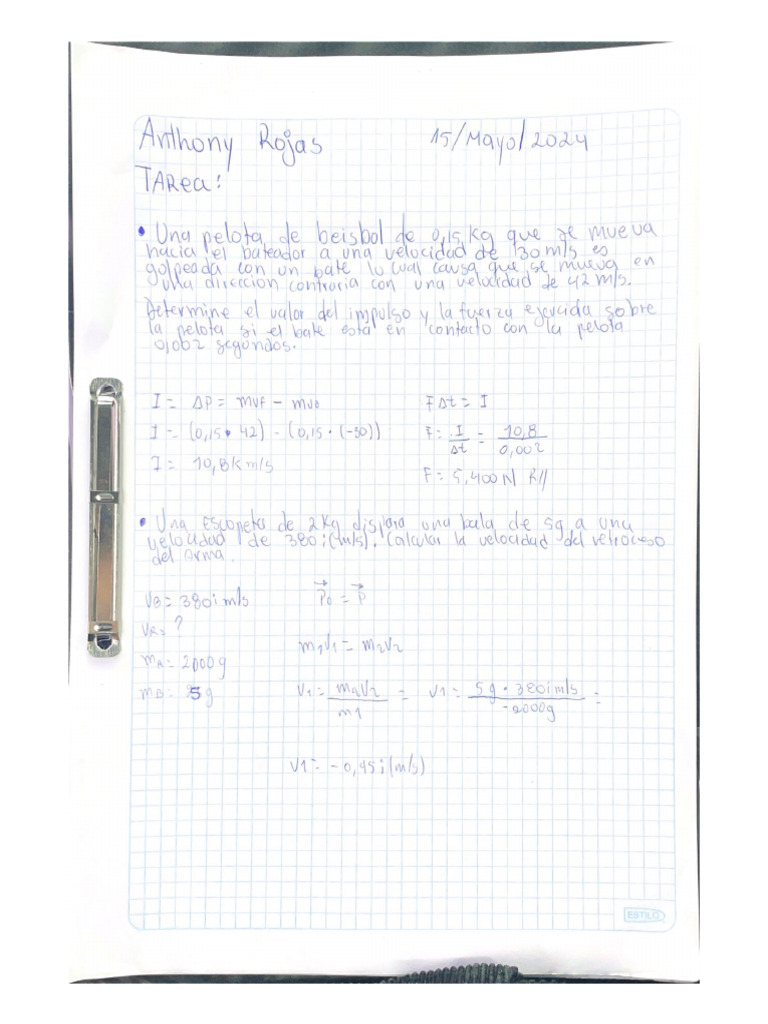 Anthony Rojas 15/Mayo/2024
TARea:
• Una pelota de beisbol de 0,15 kg que se mueva
hacia el bateador a una velocidad de 30 m/s es
golpeada con un bate lo cual causa que se mueva en
una dirección contraria con una velocidad de 42 m/s.
Determine el valor del impulso y la fuerza ejercida sobre
la pelota si el bate esta en contacto con la pelota
0,002 segundos.
I = ΔP = mvF - mv0
I = (0,15 • 42) - (0,15 • (-30))
I = 10,8 k m/s
FΔt = I
F = I/Δt = 10,8/0,002
F = 5,400 N R//
• Una Escopeta de 2 Kg dispara una bala de 5g a una
velocidad de 380 i (m/s). Calcular la velocidad del retroceso
del arma.
VB = 380 i m/s
VR = ?
mA = 2000g
mB = 5g
P0 = P
m1v1 = m2v2
v1 = m2v2/m1 = v1 = 5g • 380 i m/s/-2000g =
v1 = -0,95 i (m/s)
ESTILO